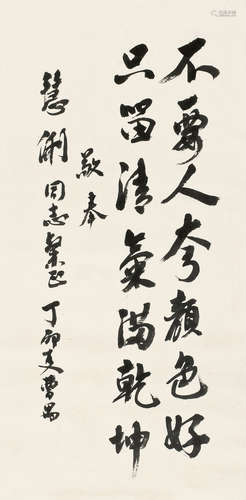 不要人夸颜色好
只留清氣满乾坤
敬奉
慧俐同志粲正 丁卯夏曹禺